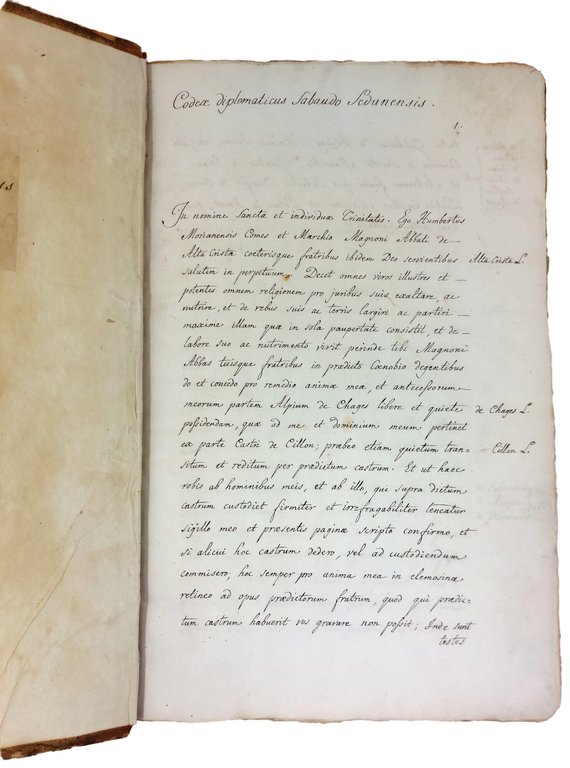 Codex diplomaticus Sabaudo Sedunensis.
1.
In nomine Sanctæ et individuæ Trinitatis. Ego Humbertus
Morianensis Comes et Marchio Magnoni Abbati de
Alta Crista cœterisque fratribus ibidem Deo servientibus Alta Crista L.
salutem in perpetuum. Decet omnes viros illustres et
potentes omnem religionem pro juribus suis exaltare, ac
nutrire, et de rebus suis ac terris largiri ac partiri
maxime illam quæ in sola paupertate consistit, et de
labore suo ac nutrimento vivit perinde tibi Magnoni
Abbas tuisque fratribus in prædicto Cœnobio degentibus
do et concedo pro remedio animæ meæ, et antecessorum
meorum partem Alpium de Chages libere et quiete de Chages L.
possidendam, quæ ad me et dominium meum pertinet
ex parte Castri de Cillon; præbeo etiam quietum tran-
situm et reditum per prædictum castrum. Et ut haec Cillon L.
vobis ab hominibus meis, et ab illo, qui supra dictum
castrum custodiet firmiter et irrefragabiliter teneatur
sigillo meo et præsentis paginæ scripto confirmo, et
si alicui hoc castrum dedero, vel ad custodiendum
commisero, hoc semper pro anima mea in elemosina
retineo ad opus prædictorum fratrum, quod qui prædic-
tum castrum habuerit vos gravare non possit; Inde sunt
testes